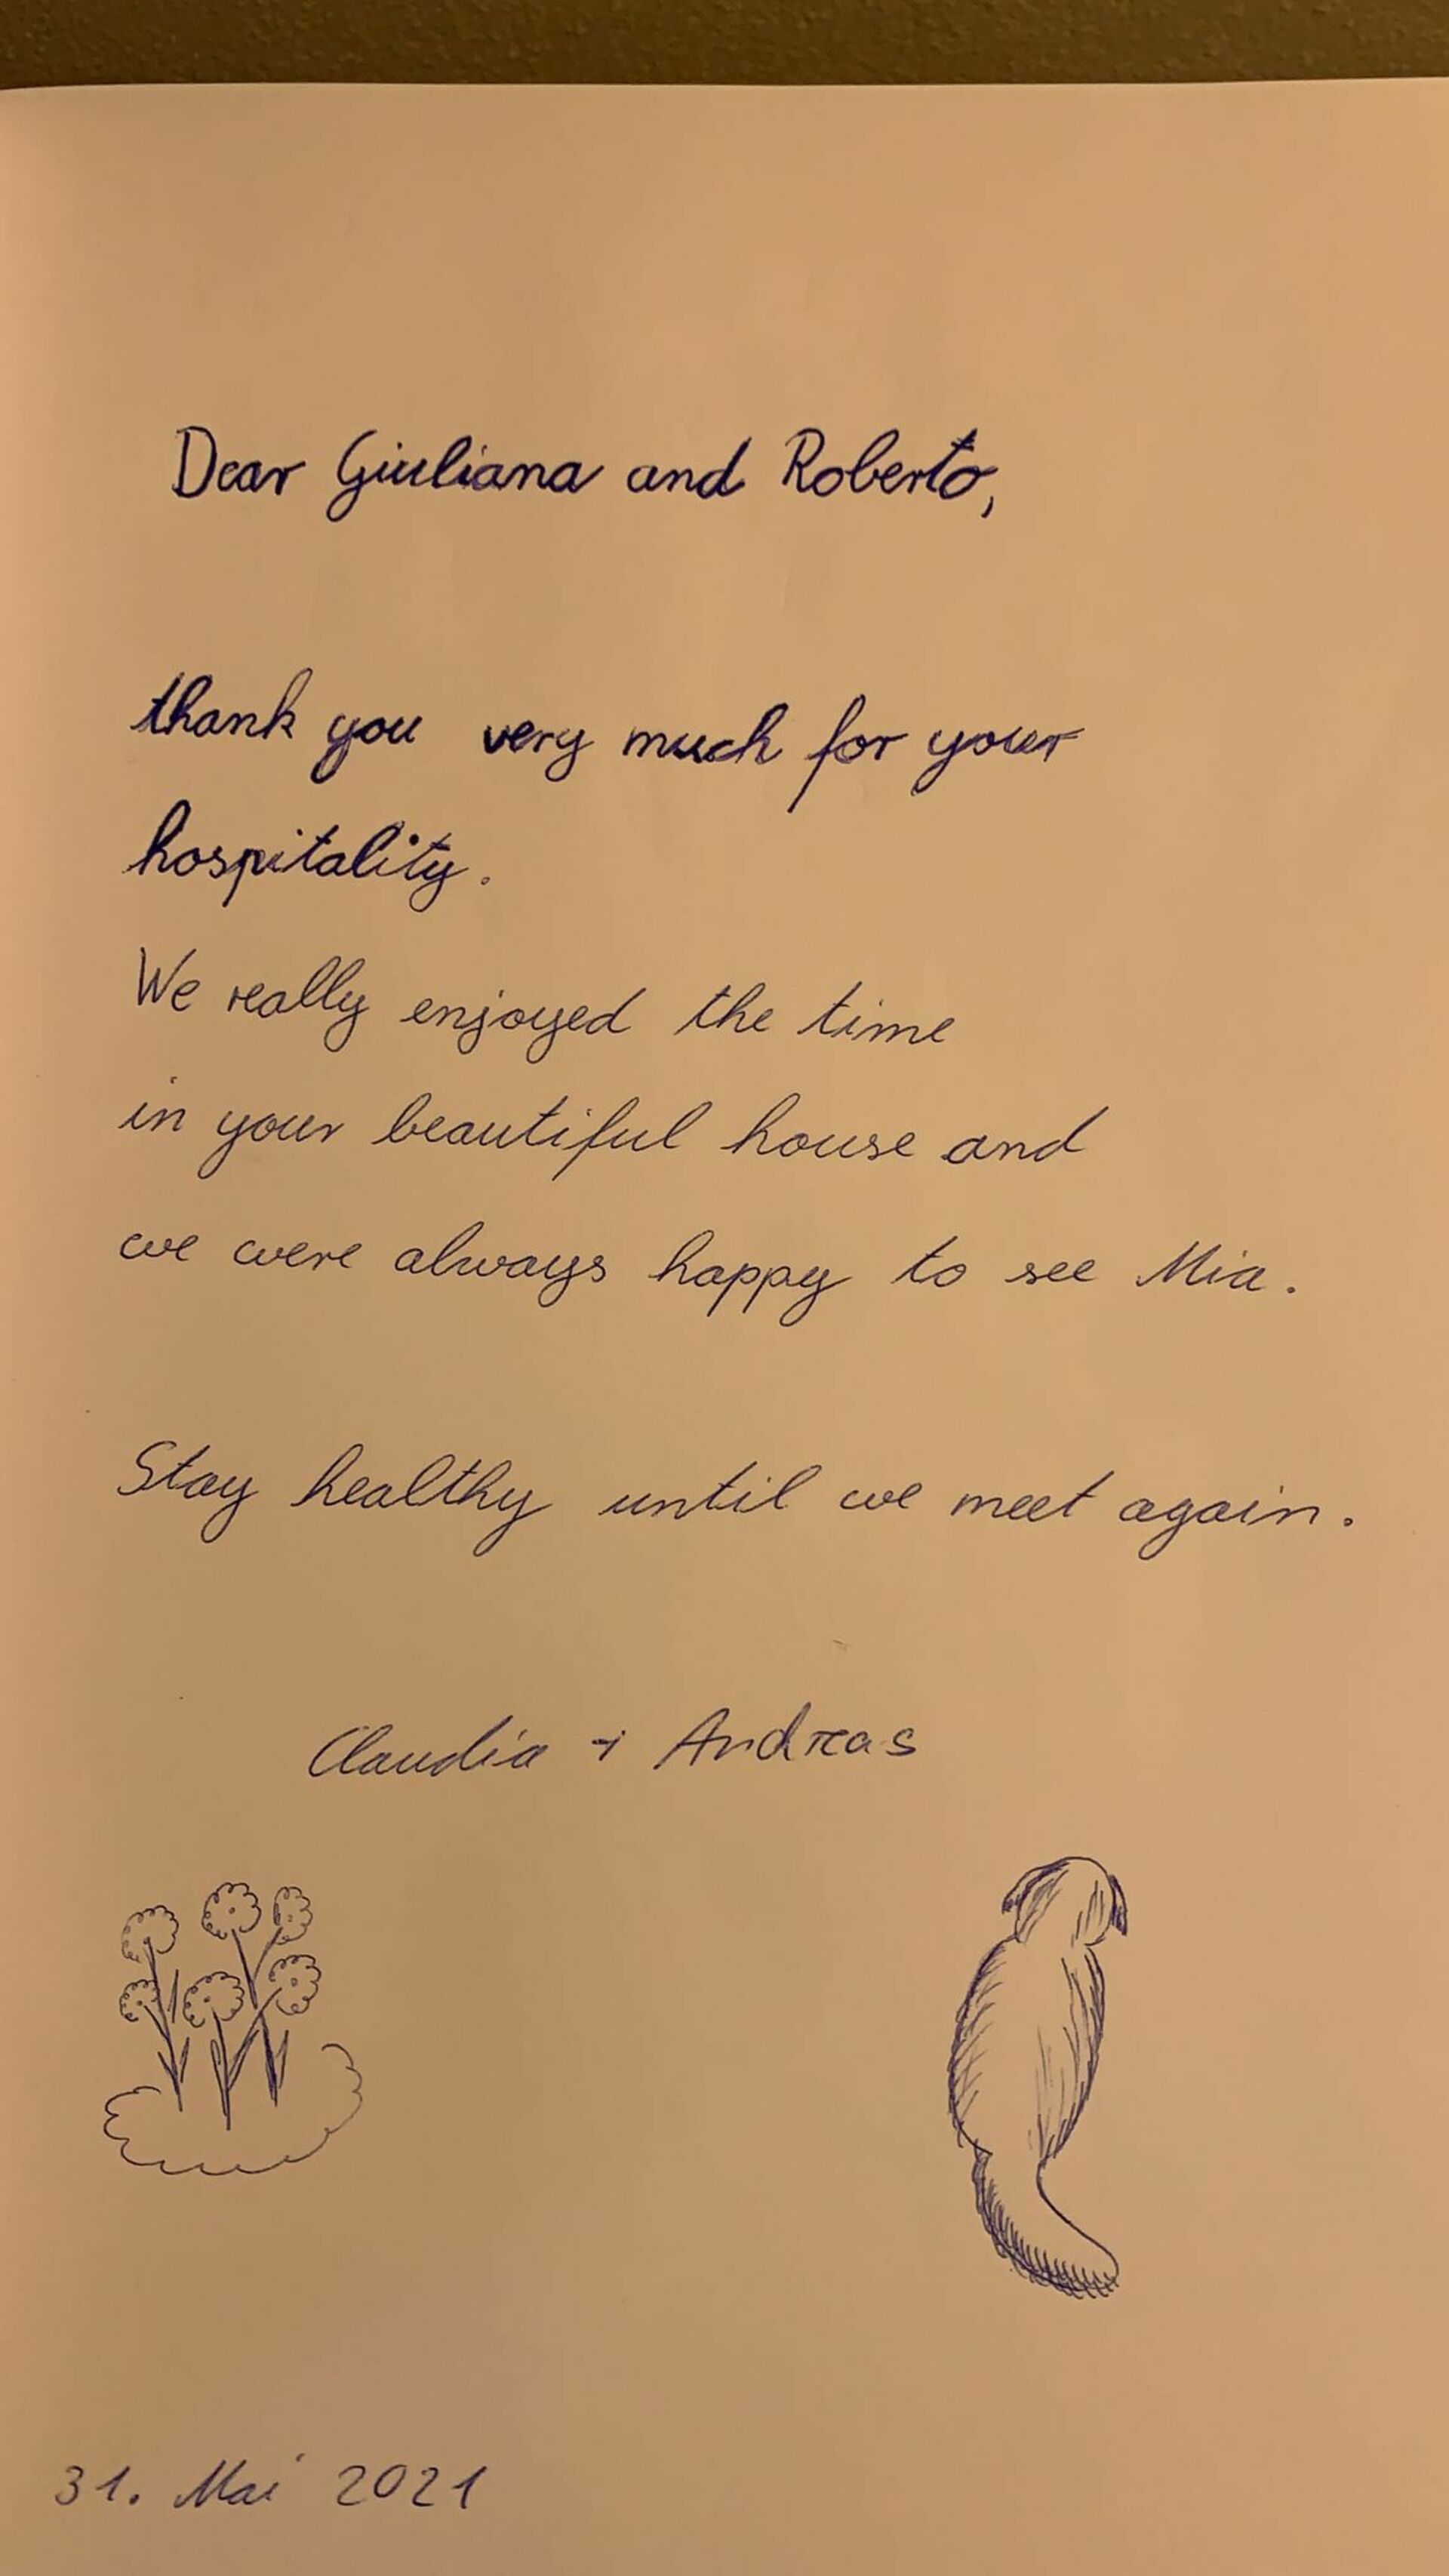 Dear Giuliana and Roberto,
thank you very much for your
hospitality.
We really enjoyed the time
in your beautiful house and
we were always happy to see Mia.
Stay healthy until we meet again.
Claudia + Andreas
31. Mai 2021